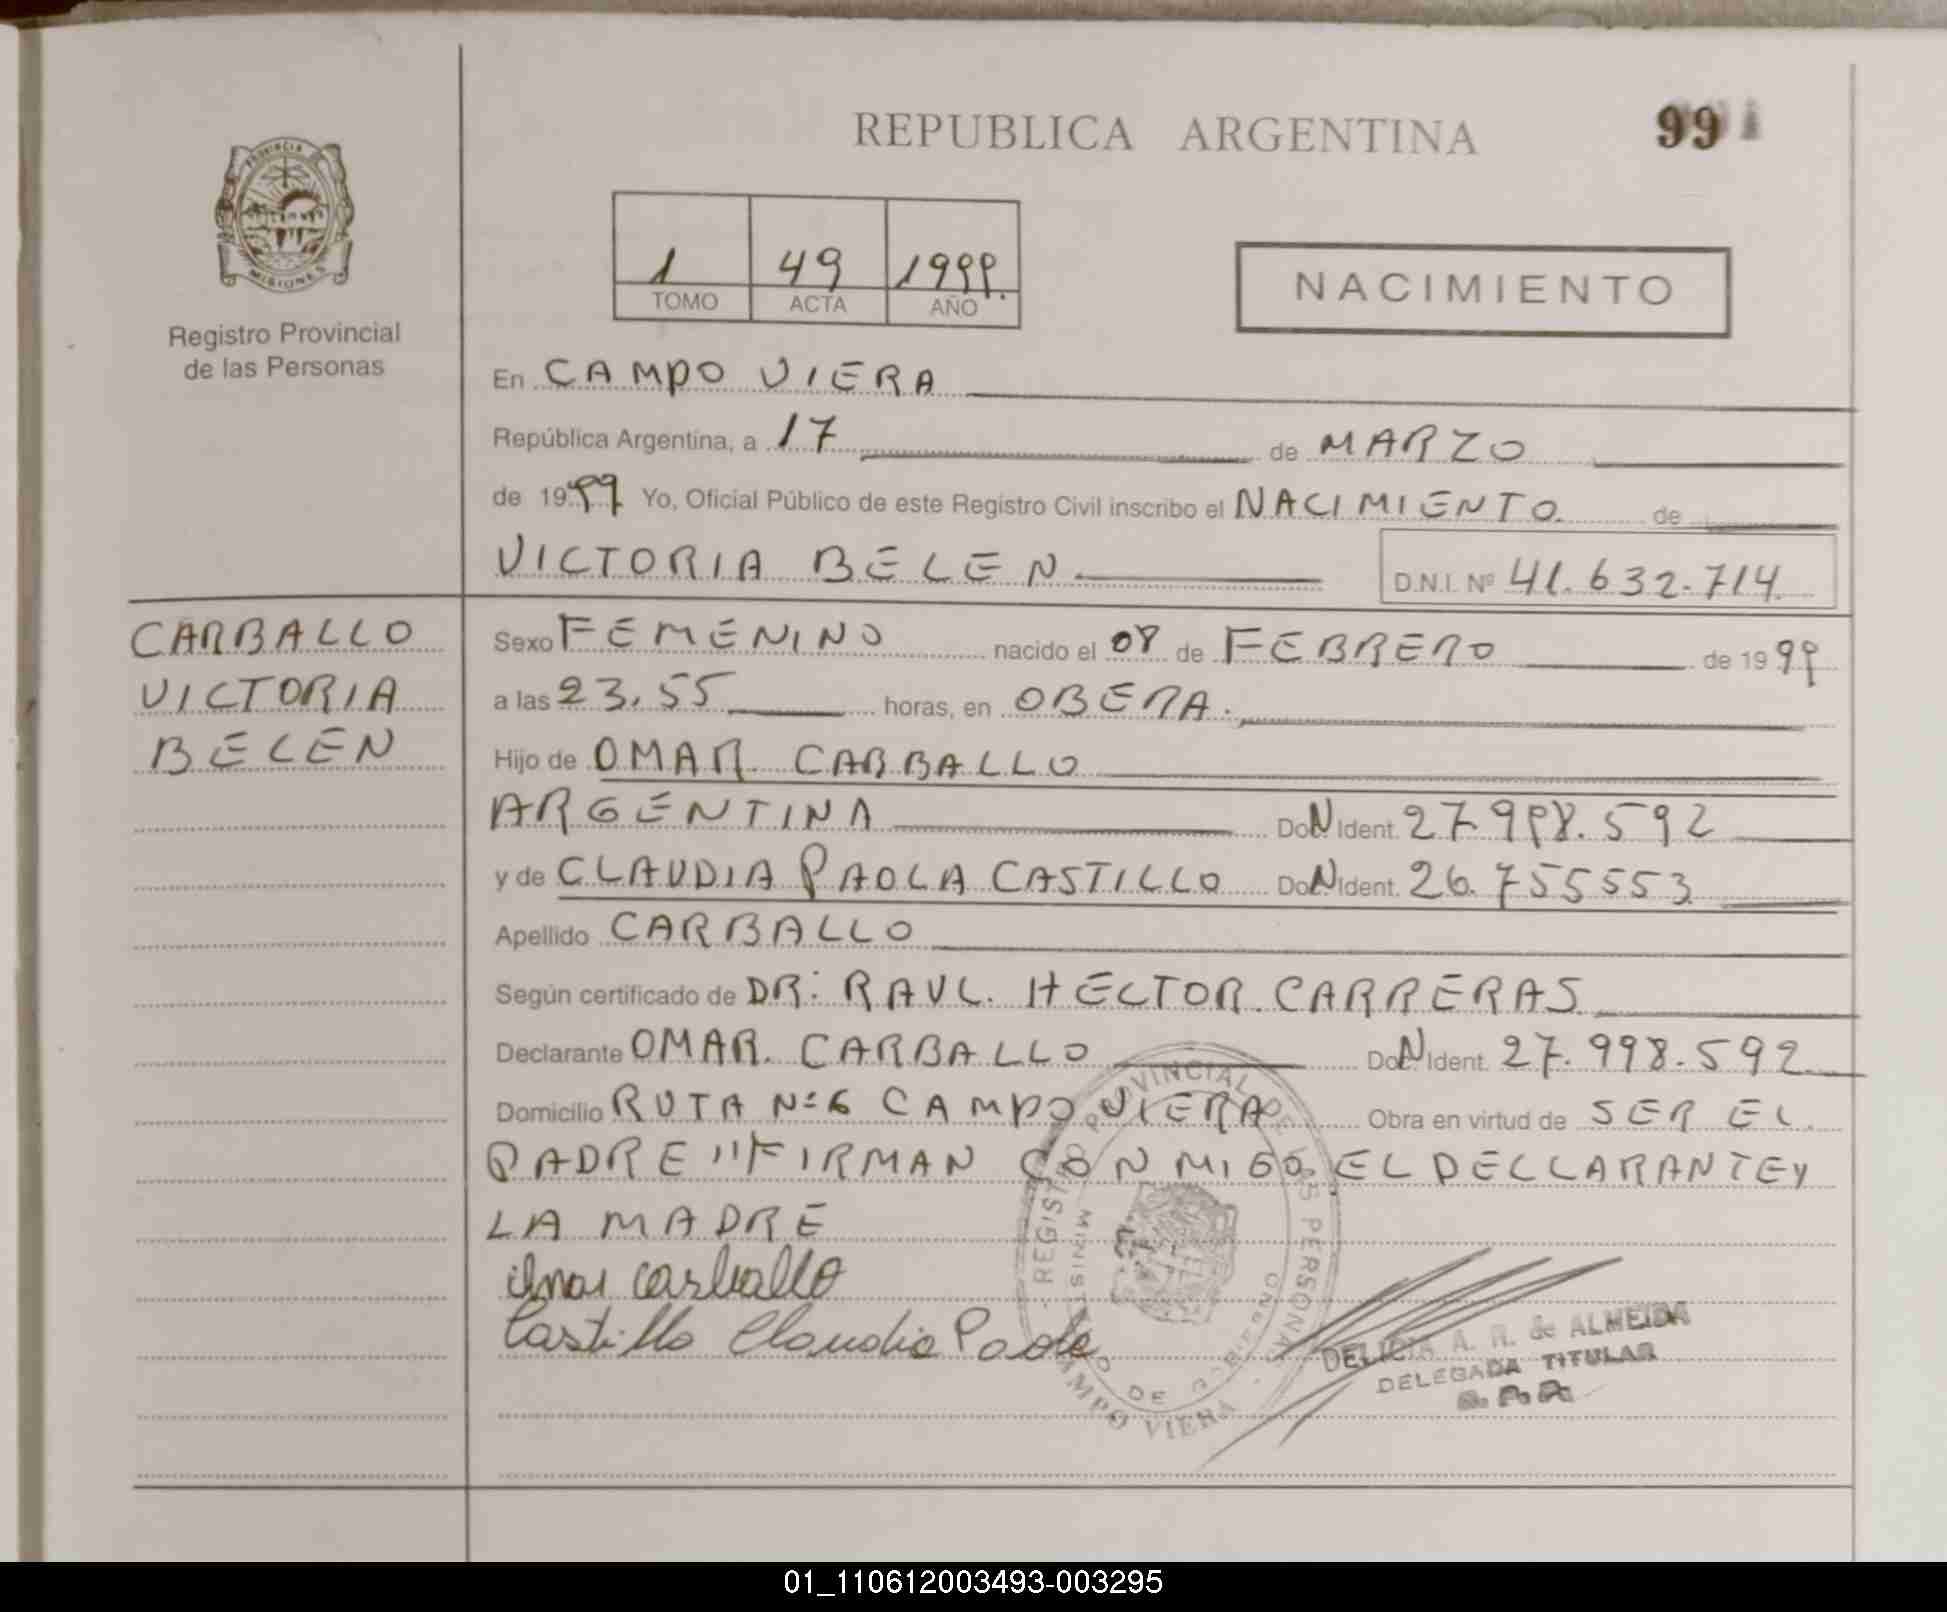 REPUBLICA ARGENTINA
99
PROVINCIA DE
MISIONES
Registro Provincial
de las Personas
1 49 1999.
TOMO ACTA AÑO
NACIMIENTO
En CAMPO VIERA
República Argentina, a 17 de MARZO
de 1999 Yo, Oficial Público de este Registro Civil inscribo el NACIMIENTO. de
VICTORIA BELEN. D.N.I. Nº 41.632.714
CARBALLO
VICTORIA
BELEN
Sexo FEMENINO nacido el 08 de FEBRERO de 1999
a las 23,55 horas, en OBERA.
Hijo de OMAR. CARBALLO
ARGENTINA Doc. N Ident. 27.998.592
y de CLAUDIA PAOLA CASTILLO Doc. N Ident. 26.755553
Apellido CARBALLO
Según certificado de DR: RAUL. HECTOR. CARRERAS
Declarante OMAR. CARBALLO Doc. N Ident. 27.998.592
Domicilio RUTA Nº 6 CAMPO VIERA Obra en virtud de SER EL
PADRE "FIRMAN CONMIGO EL DECLARANTE Y
LA MADRE
Omar Carballo
Castillo Claudia Paola
REGISTRO PROVINCIAL DE LAS PERSONAS
MINISTERIO DE GOBIERNO
CAMPO VIERA
DELICIA A. R. de ALMEIDA
DELEGADA TITULAR
01_110612003493-003295